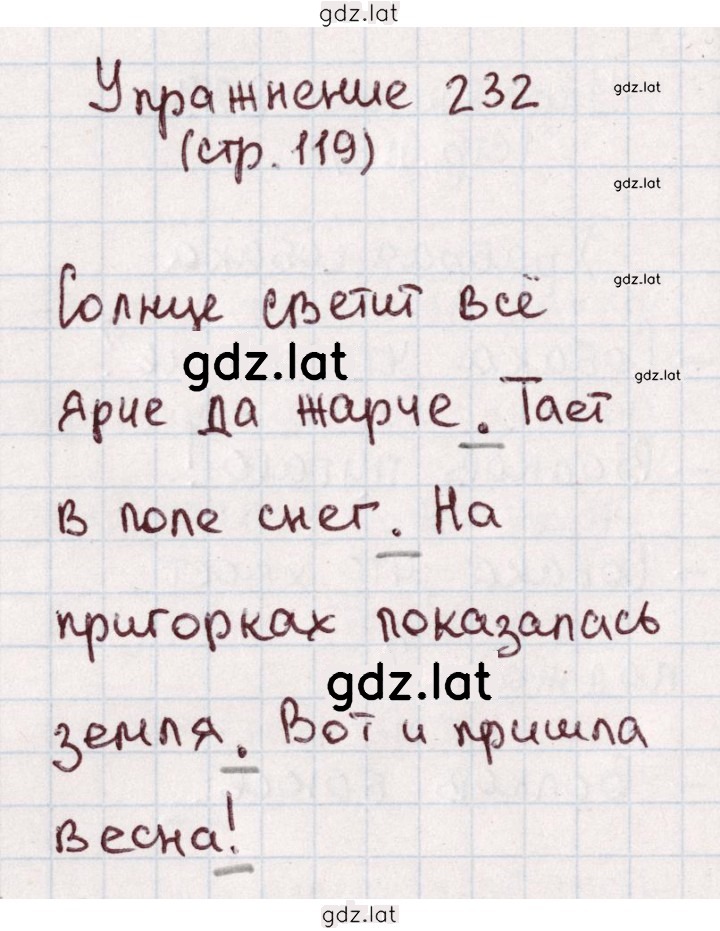 gdz.lat
Упражнение 232
gdz.lat
(стр. 119)
gdz.lat
Солнце светит всё
gdz.lat
gdz.lat
gdz.lat
ярче да жарче. Тает
в поле снег. На
пригорках показалась
gdz.lat
земля. Вот и пришла
весна!
gdz.lat